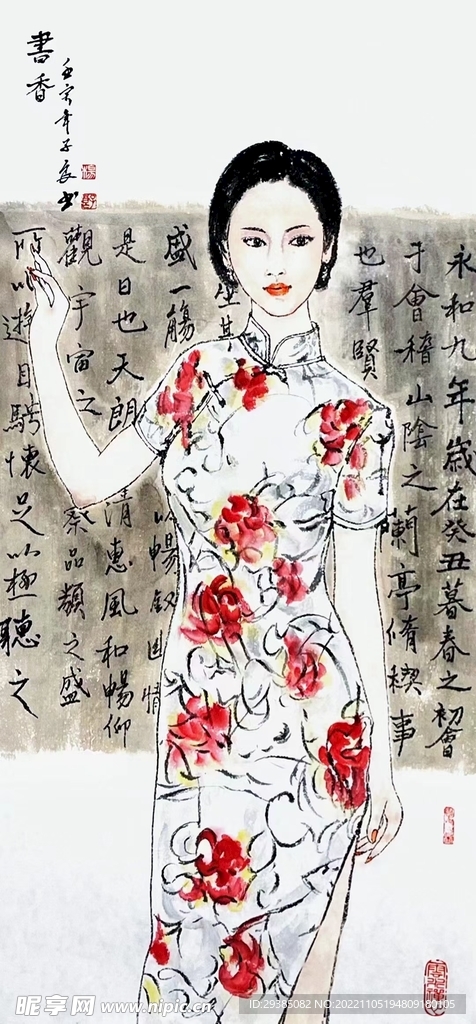 書香
壬寅年子辰书
永和九年歲在癸丑暮春之初會
于會稽山陰之蘭亭脩稧事
也羣賢
坐其
盛一觴
以暢叙幽情
是日也天朗
清惠風和暢仰
觀宇宙之
察品類之盛
所以遊目騁懷足以極聽之
昵享网 www.nipic.cn
ID:29385082 NO:20221105194809180105